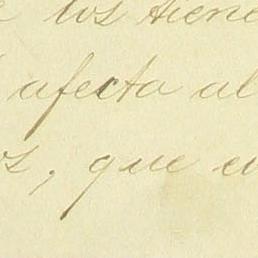 los tiene
afecta al
, que